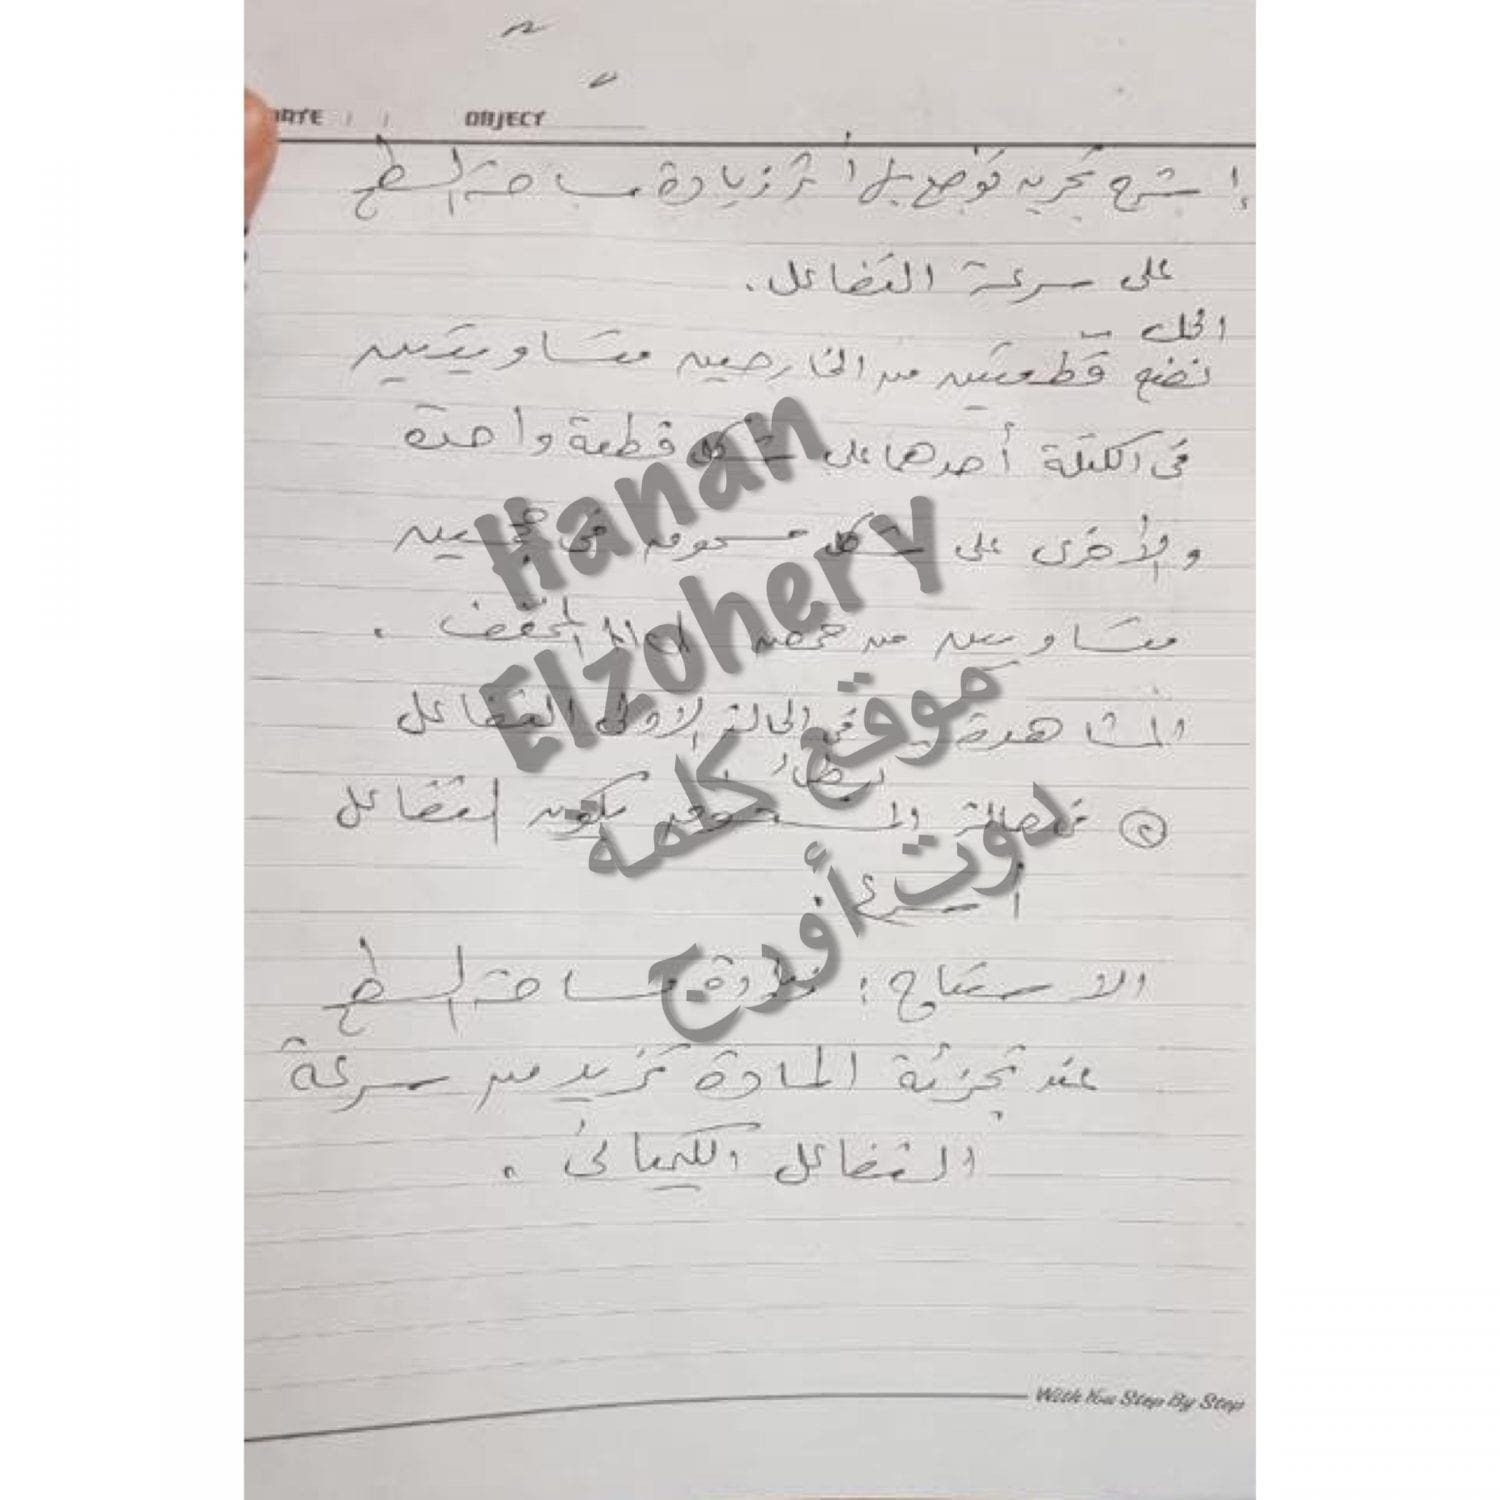 DATE / / OBJECT
إشرح تجربه توضح بها أثر زيادة مساحة السطح
على سرعة التفاعل.
الحل
نضع قطعتين من الخارصين متساويتين
في الكتلة أحدهما على شكل قطعة واحدة
والأخرى على شكل مسحوق في حجمين
متساويين من حمض المخفف.
المشاهدة في الحالة الأولى التفاعل
بطئ
٢ في حالة المسحوق يكون التفاعل
أسرع
الاستنتاج: زيادة مساحة السطح
عند تجزئة المادة تزيد من سرعة
التفاعل الكيميائى.
With You Step By Step
Hanan
Elzohery
موقع كلمة
دوت أورج